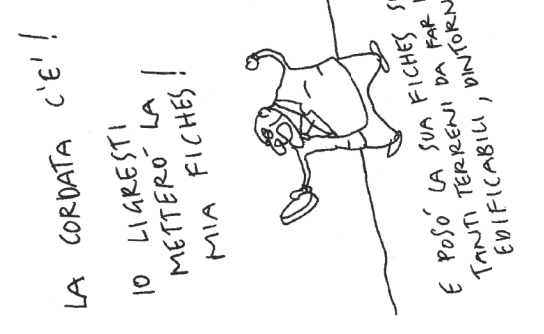 LA CORDATA C'E'!
IO LIGRESTI
METTERÒ LA
MIA FICHES!
E POSÒ LA SUA FICHES
TANTI TERRENI DA FAR
EDIFICABILI,